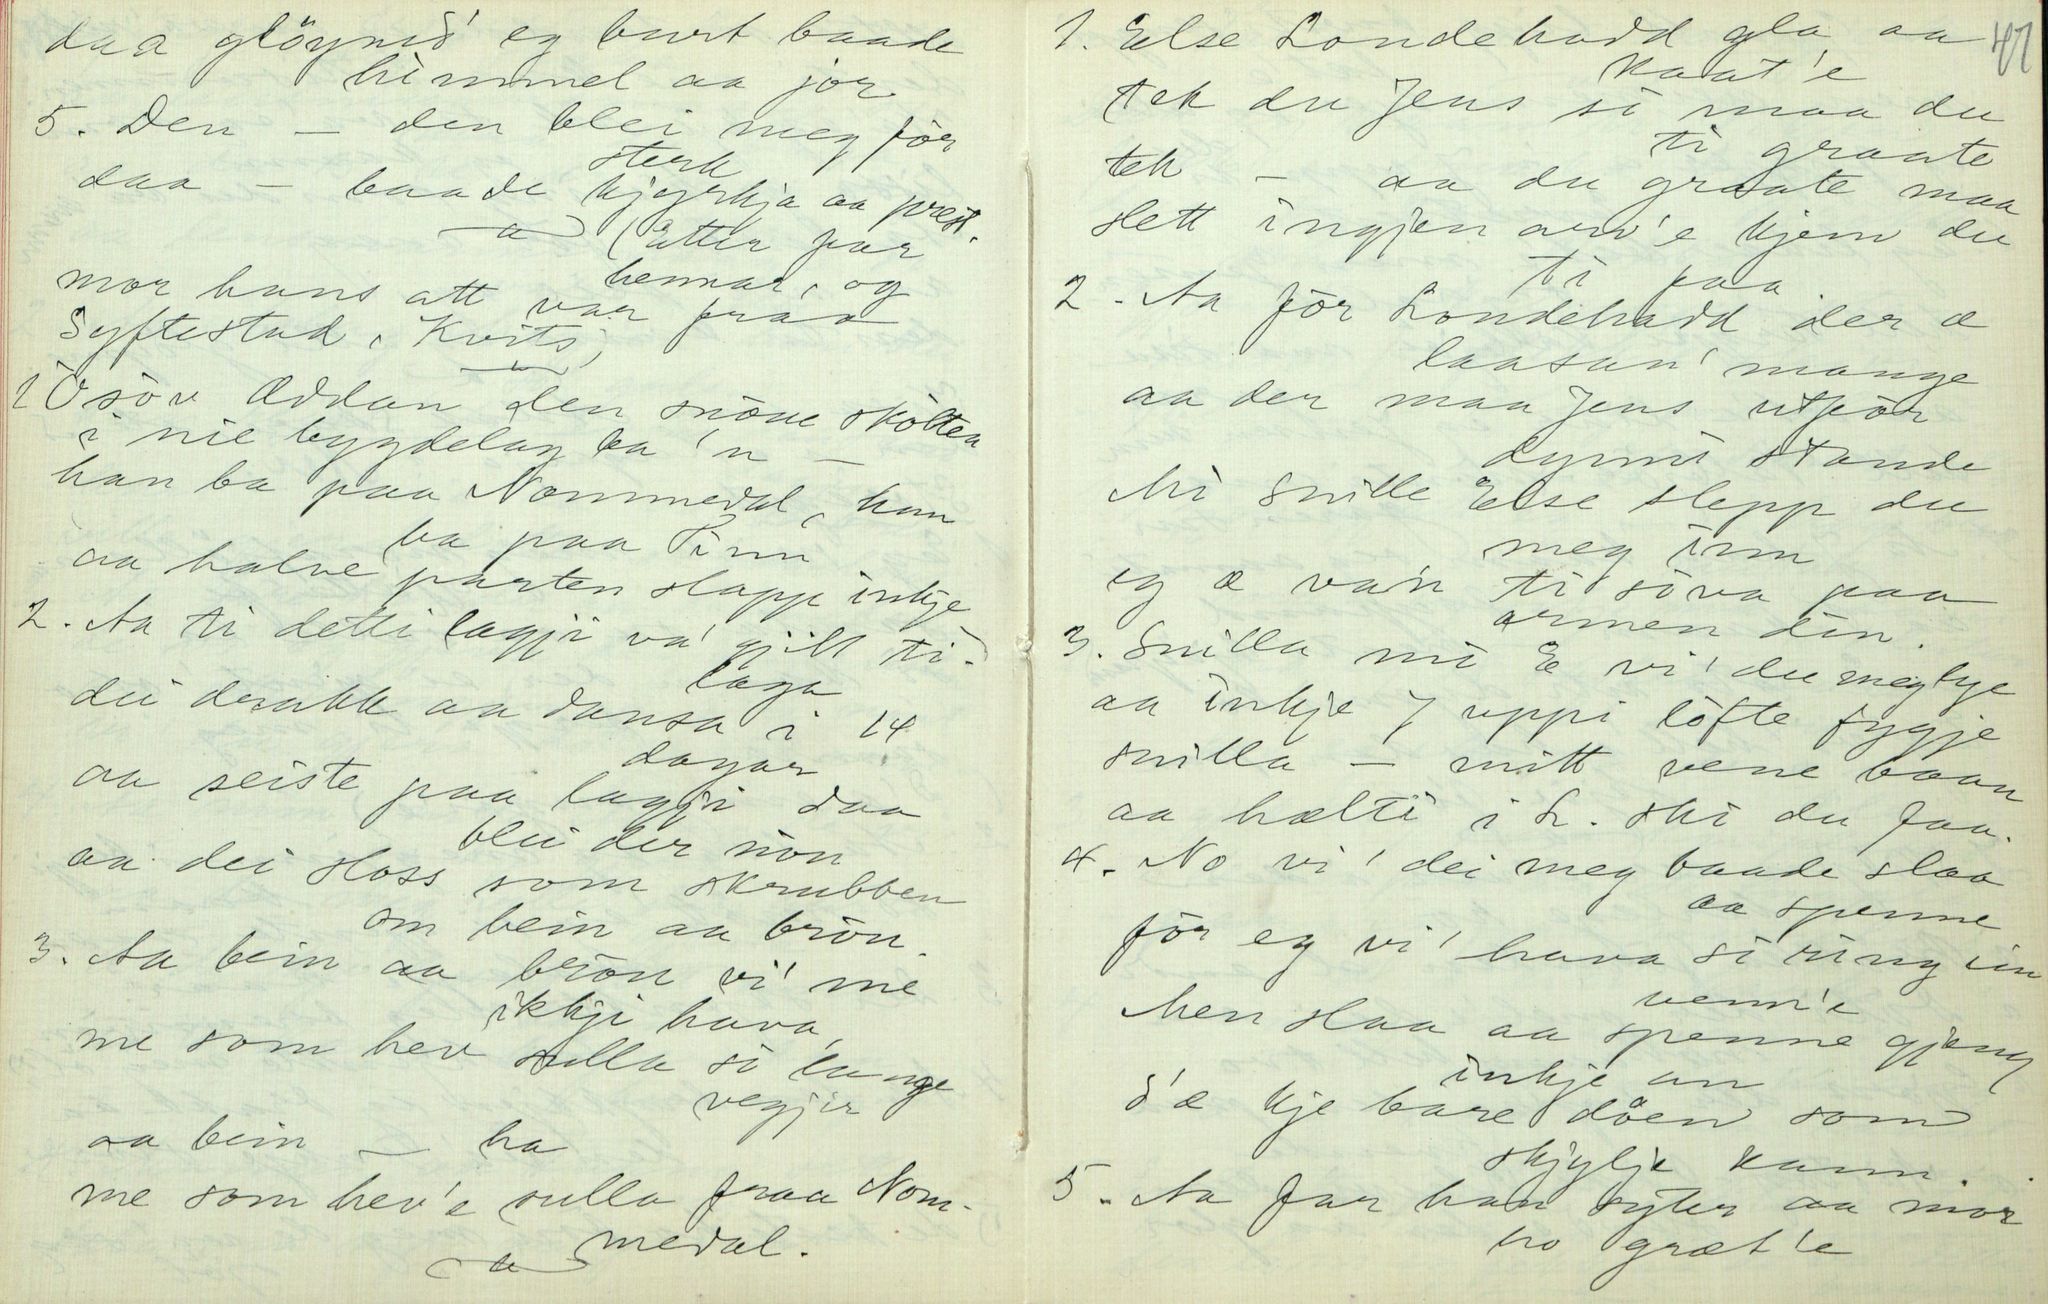 daa glöymd' eg burt baade
himmel aa jor
5. Den — den blei meg för
sterk
daa — baade kjyrkja aa prest.
(Etter far
hennar, og
mor hans att var fraa
Syftestad, Kvits)
1 Osöv Øddan den snöue skölten
i nie bygdelag ba 'n —
han ba paa Nommedal, han
ba paa Tinn
aa halve parten slapp inkje
2. Aa ti detti lagji va' gjilt ti-
laga
dei drakk aa dansa i 14
dagar
aa seiste paa lagji daa
blei der nön
aa dei sloss som skrubben
om bein aa brön
3. Aa bein aa brön vi' me
ikkji hava,
me som hev rulla si lange
vegjir
aa bein — ha
me som hev'e rulla fraa Nom-
medal.
47
1. Else Londehadd gla aa
kaat'e
tek du Jens si maa du
ti graate
tek — aa du graate maa
slett ingjen arv'e kjem du
ti paa
2. Aa för Londehadd der æ
laasan' mange
aa der maa Jens utför
dynni stande
Mi snille Else slepp du
meg inn
eg æ va'n ti söva paa
armen din.
3. Snilla mi E vi' du meg lye
aa inkje J uppi löfte fygje
snilla — mitt vene baan
aa hælti i L. ski du faa.
4. No vi' dei meg baade slaa
aa spenne
för eg vi' hava si ring ein
venn'e
Men slaa aa spenne gjeng
inkje an
d'æ kje bare döen som
skjylje kann.
5. Aa far han syter aa mor
ho græt'e